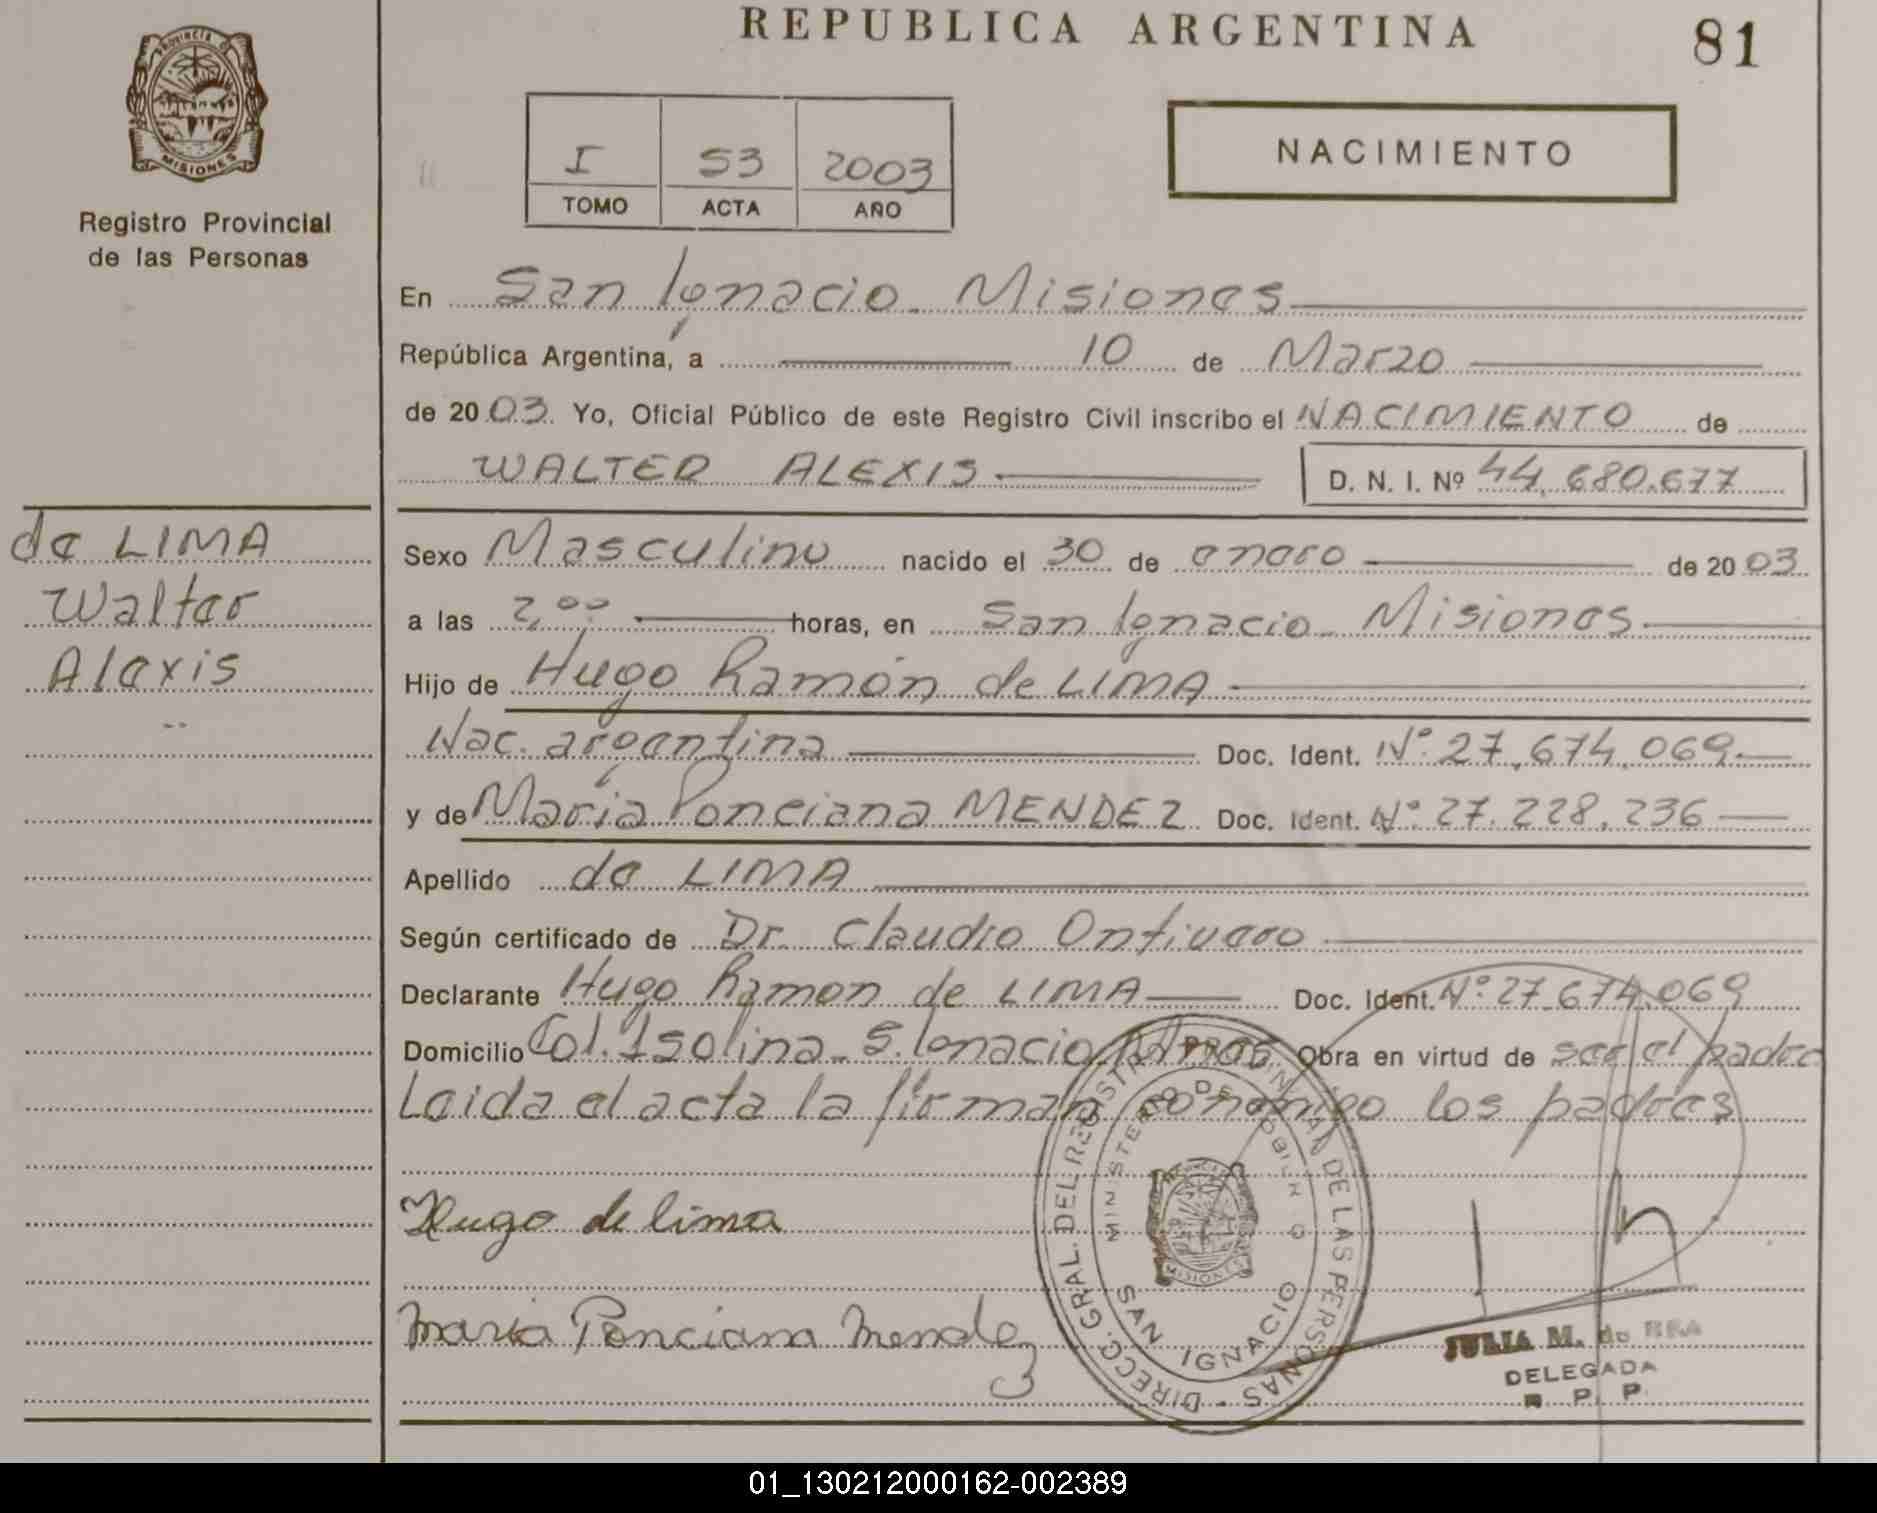 REPUBLICA ARGENTINA
81
PROVINCIA DE
MISIONES
Registro Provincial
de las Personas
I 53 2003
TOMO ACTA AÑO
NACIMIENTO
En San Ignacio Misiones
República Argentina, a 10 de Marzo
de 2003. Yo, Oficial Público de este Registro Civil inscribo el NACIMIENTO de
WALTER ALEXIS D. N. I. Nº 44.680.677
de LIMA
Walter
Alexis
Sexo Masculino nacido el 30 de enero de 2003
a las 2,00 horas, en San Ignacio Misiones
Hijo de Hugo Ramón de LIMA
Nac. argentina Doc. Ident. Nº 27.674.069
y de María Ponciana MENDEZ Doc. Ident. Nº 27.228.236
Apellido de LIMA
Según certificado de Dr. Claudio Ontivero
Declarante Hugo Ramon de LIMA Doc. Ident. Nº 27.674.069
Domicilio Col. Isolina S. Ignacio Obra en virtud de ser el padre
Leida el acta la firman conmigo los padres
Hugo de lima
Maria Ponciana Mendez
DIRECC. GRAL. DEL REGISTRO PROVINCIAL DE LAS PERSONAS
MINISTERIO DE GOBIERNO
MISIONES
SAN IGNACIO
JULIA M. de
DELEGADA
R. P. P.
01_130212000162-002389